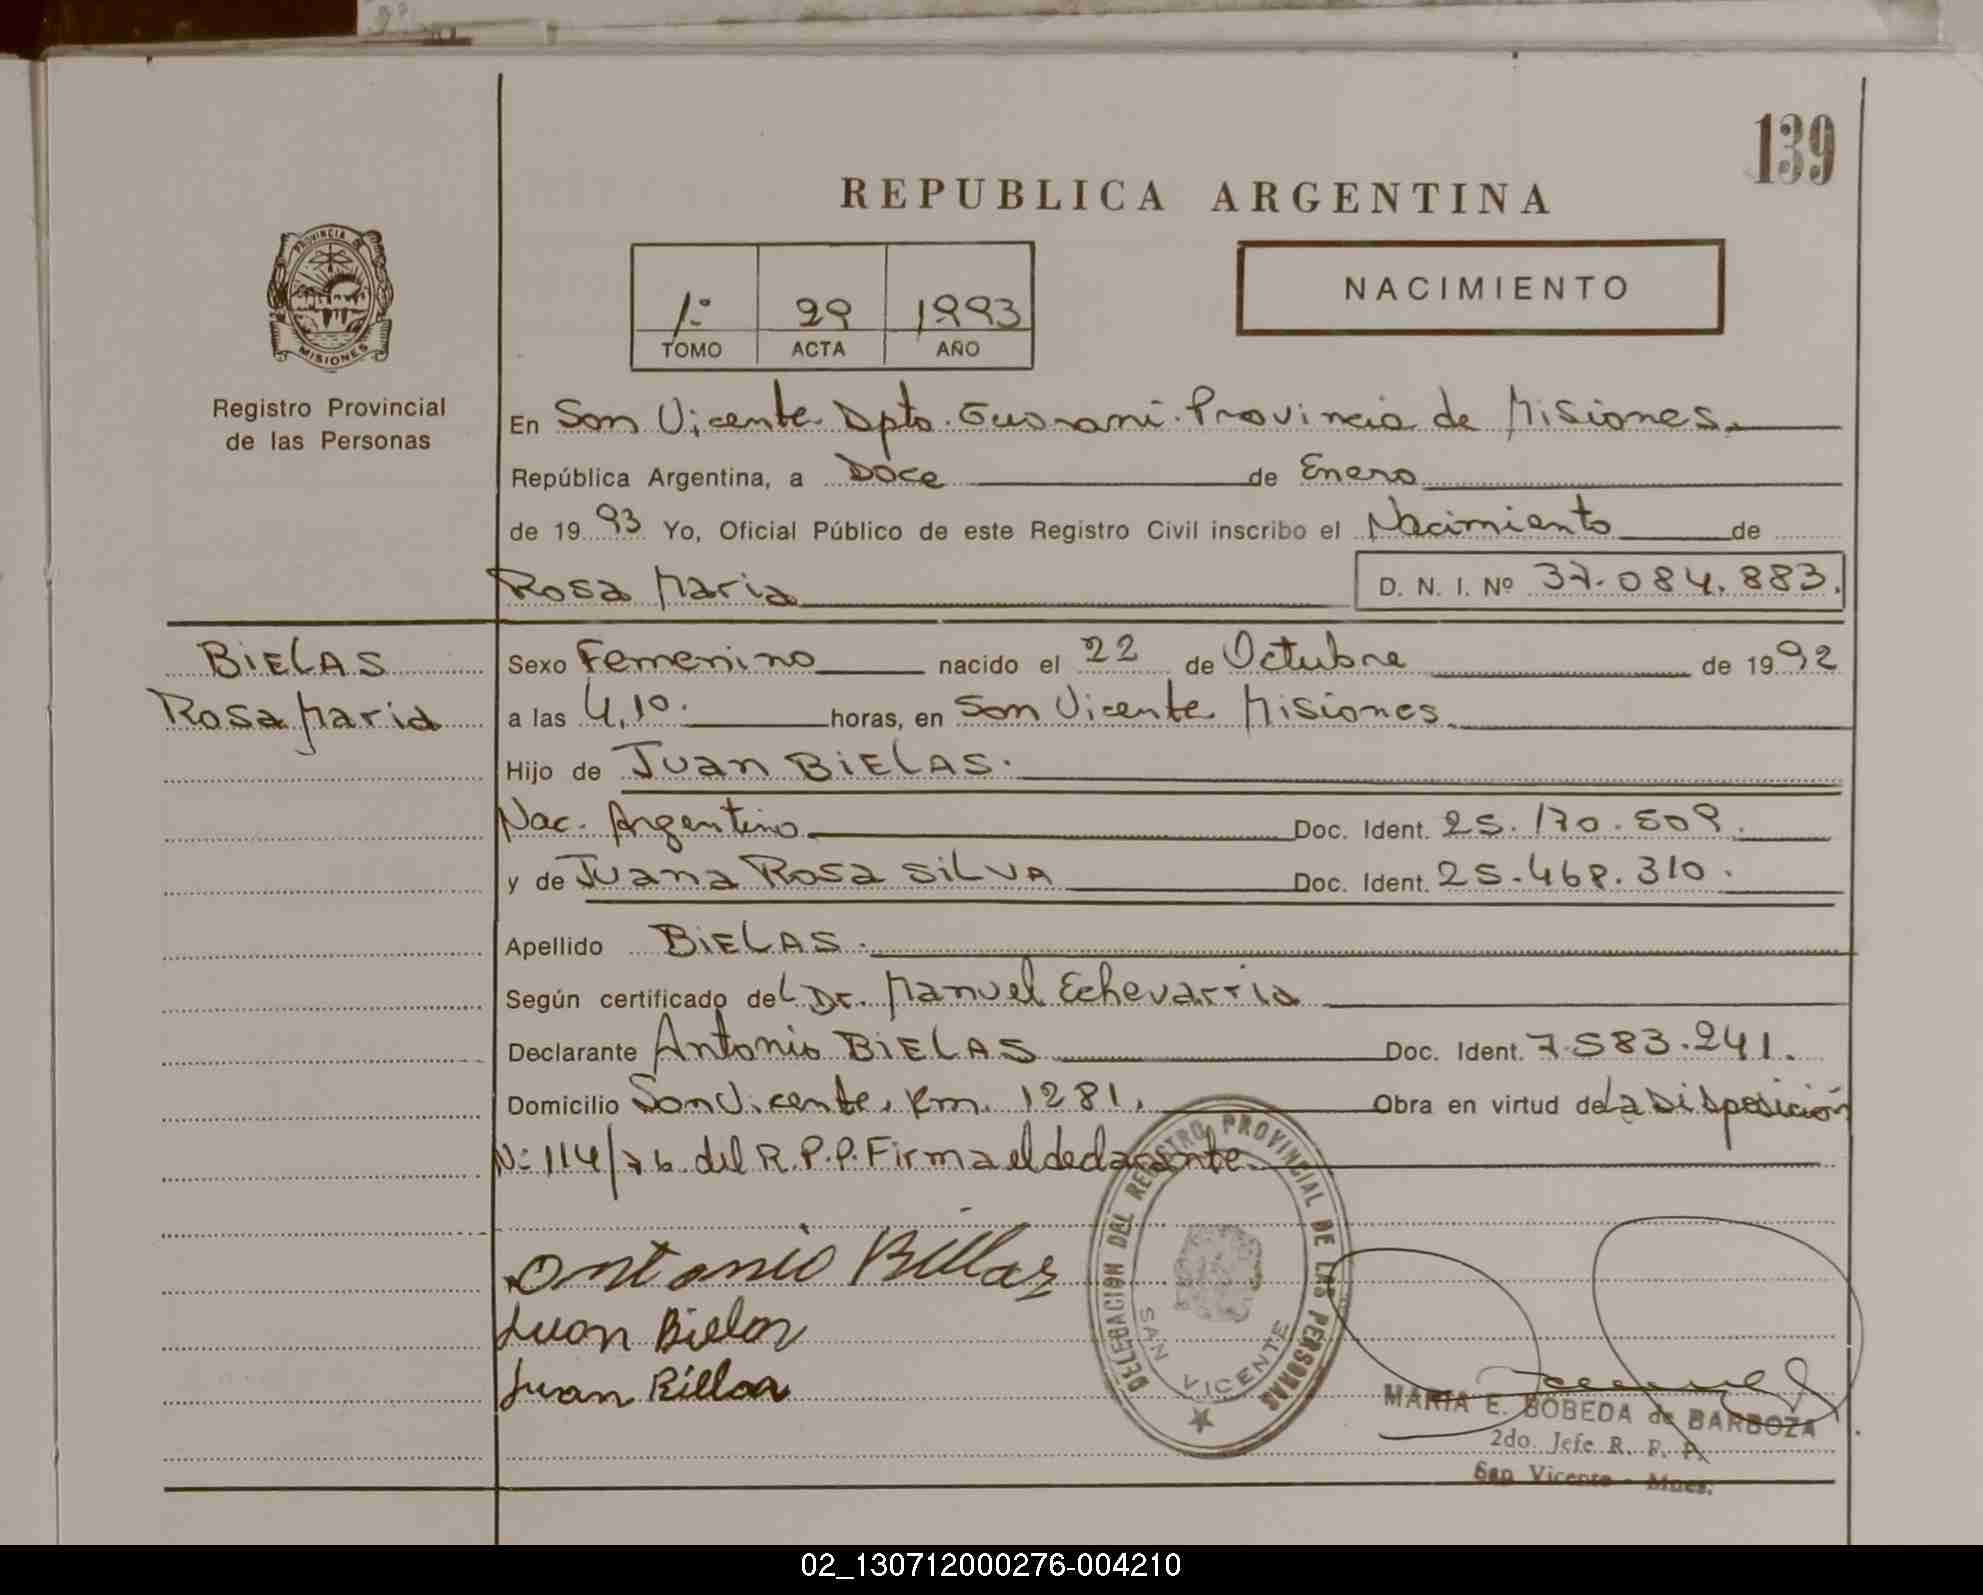 139
REPUBLICA ARGENTINA
PROVINCIA DE
MISIONES
Registro Provincial
de las Personas
1º 29 1993
TOMO ACTA AÑO
NACIMIENTO
En San Vicente Dpto. Guarani. Provincia de Misiones.
República Argentina, a Doce de Enero
de 19 93 Yo, Oficial Público de este Registro Civil inscribo el Nacimiento de
Rosa Maria D. N. I. Nº 37.084.883.
BIELAS
Rosa Maria
Sexo Femenino nacido el 22 de Octubre de 19 92
a las 4,10. horas, en San Vicente Misiones.
Hijo de Juan BIELAS.
Nac. Argentino Doc. Ident. 25.170.509.
y de Juana Rosa SILVA Doc. Ident. 25.468.310.
Apellido BIELAS.
Según certificado del Dr. Manuel Echevarria
Declarante Antonio BIELAS Doc. Ident. 7.583.241.
Domicilio San Vicente, Km. 1281, Obra en virtud de la Disposición
Nº 114/76 del R.P.P. Firma el declarante.
Antonio Billas
Juan Bielas
Juan Billas
DELEGACION DEL REGISTRO PROVINCIAL DE LAS PERSONAS
SAN VICENTE
MARIA E. BOBEDA de BARBOZA
2do. Jefe R. P. P.
San Vicente - Mnes.
02_130712000276-004210